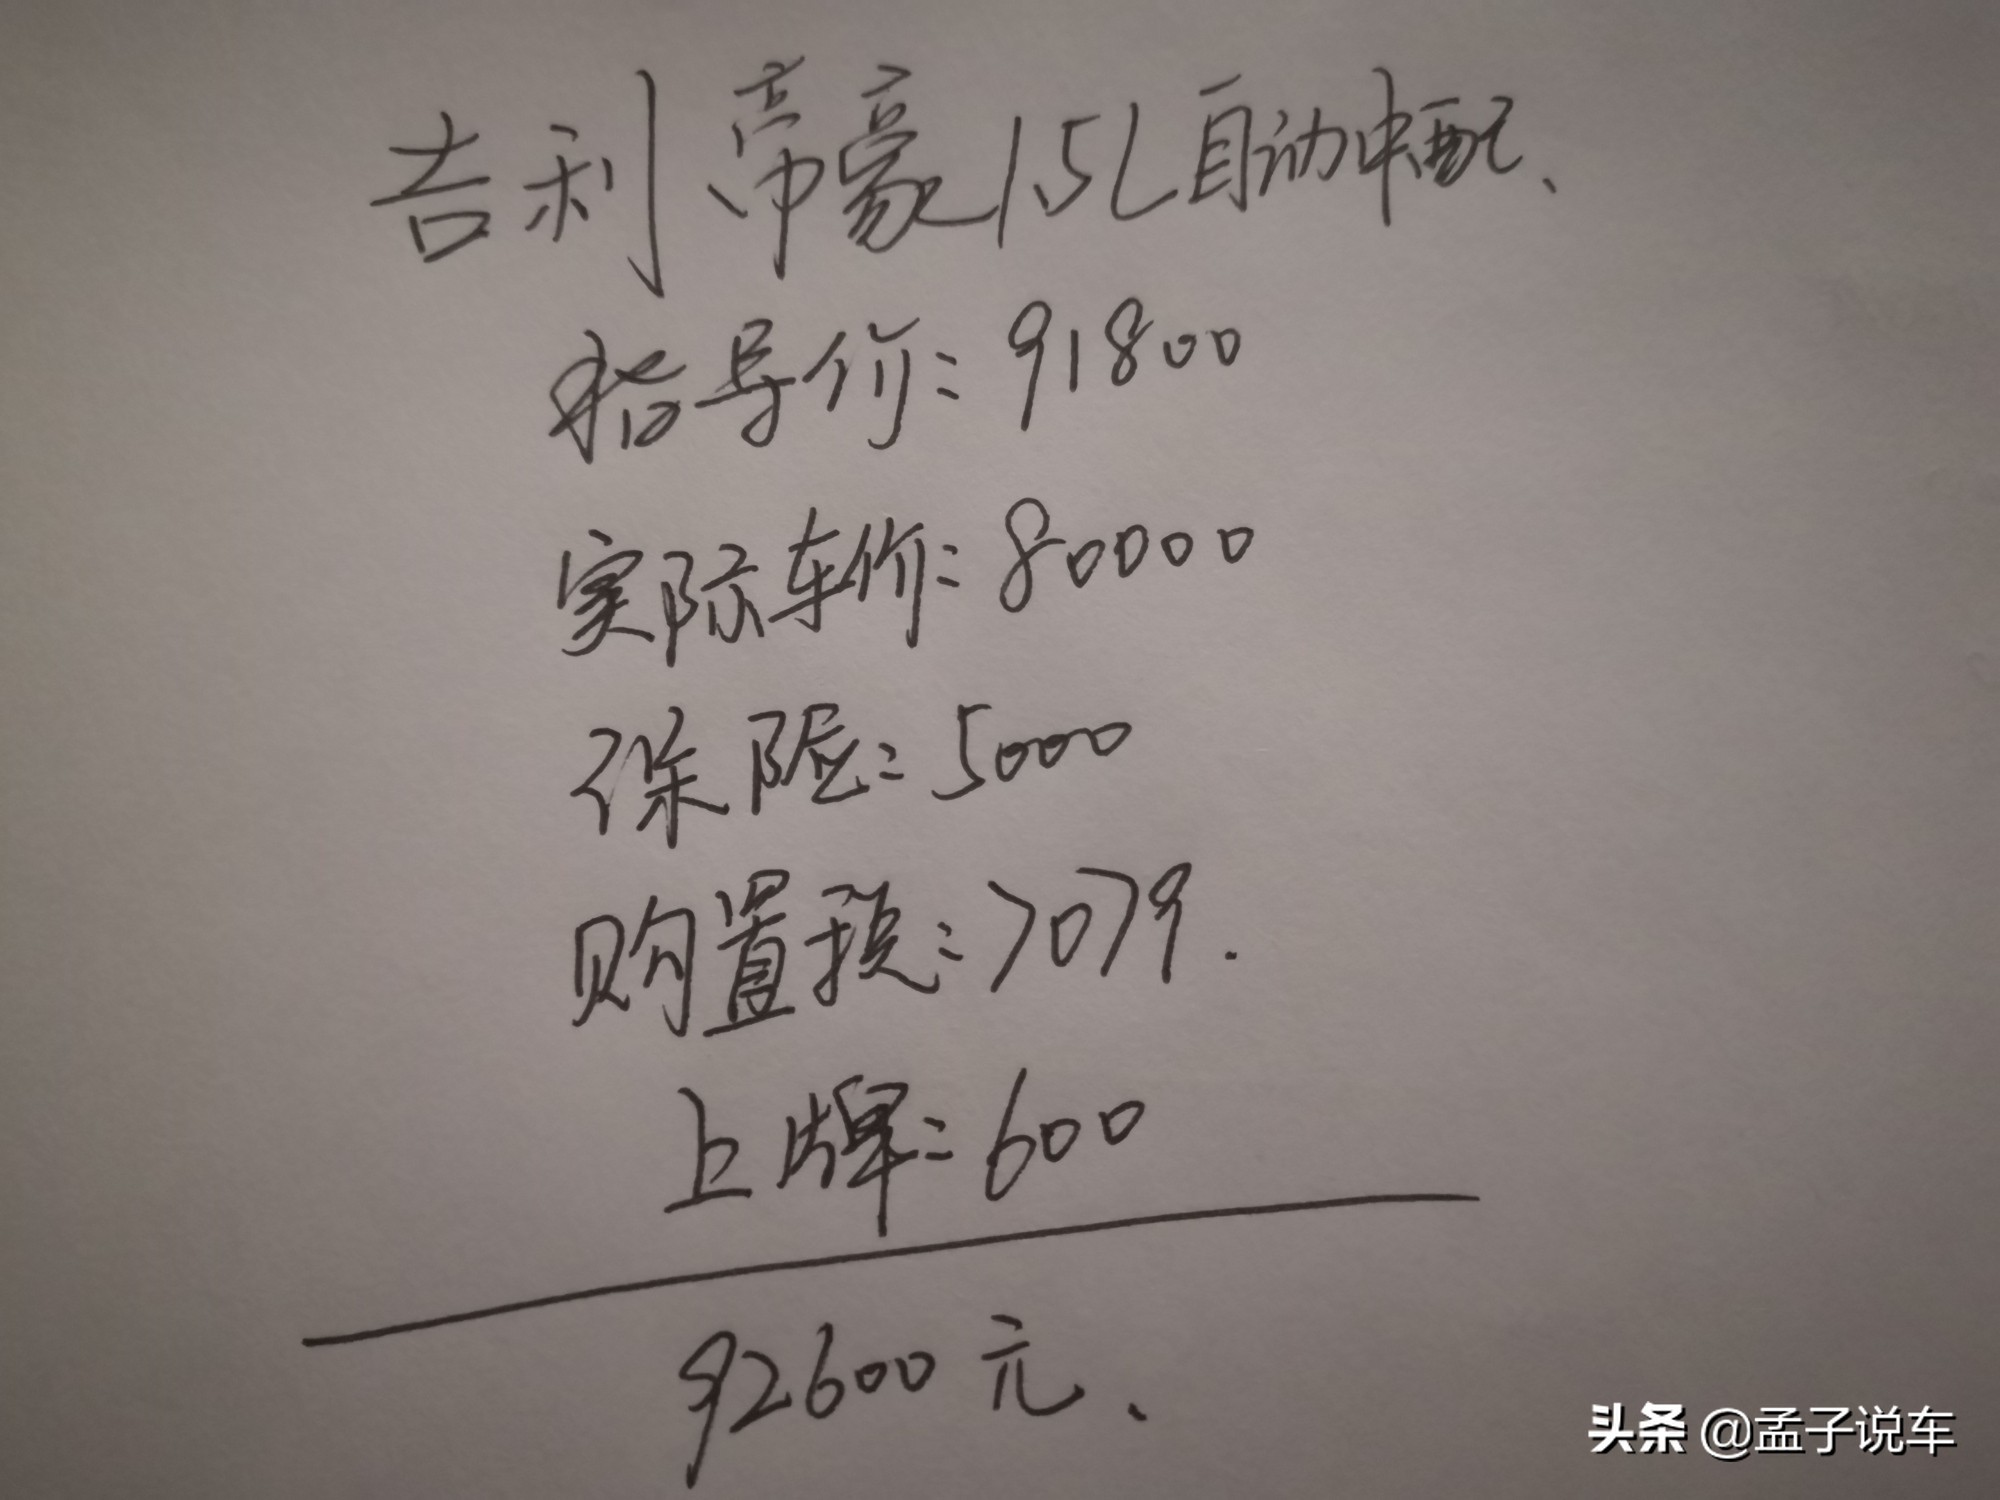 吉利帝豪1.5L自动中配、
指导价:91800
实际车价:80000
保险:5000
购置税:7079.
上牌:600
92600元、
头条 @孟子说车